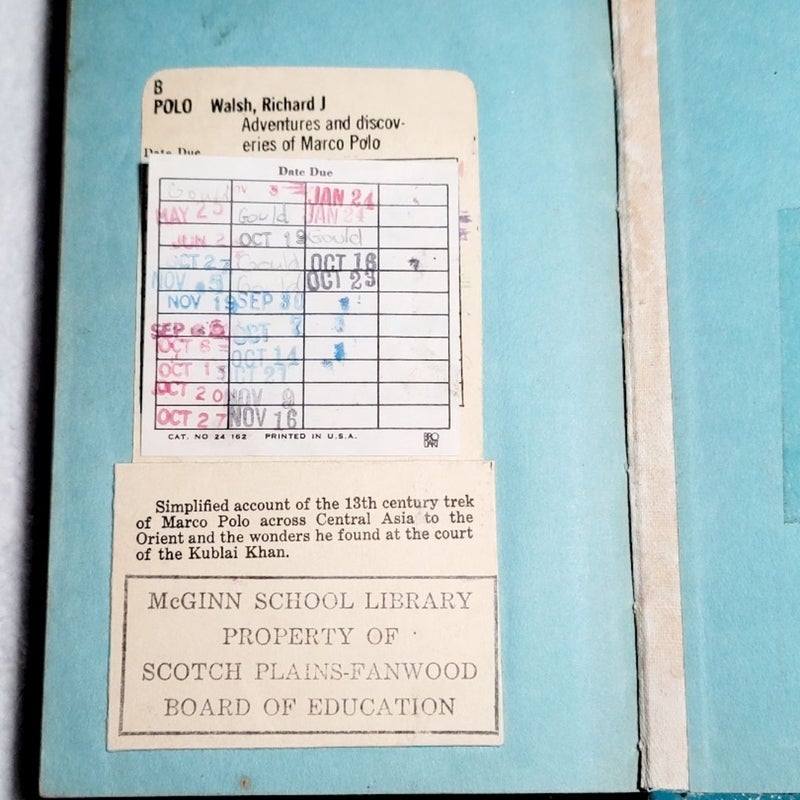 B
POLO Walsh, Richard J
Adventures and discov-
eries of Marco Polo
Date Due
Date Due
JAN 24
MAY 25 Gould JAN 24
JUN 2 OCT 19 Gould
OCT 27 Gould OCT 16
NOV Gould OCT 23
NOV 19 SEP 30
SEP
OCT 6 OCT 7
OCT 13 OCT 14
OCT 20 OCT 21
NOV 9
OCT 27 NOV 16
CAT. NO 24 162 PRINTED IN U.S.A. BRO DART
Simplified account of the 13th century trek
of Marco Polo across Central Asia to the
Orient and the wonders he found at the court
of the Kublai Khan.
McGINN SCHOOL LIBRARY
PROPERTY OF
SCOTCH PLAINS-FANWOOD
BOARD OF EDUCATION